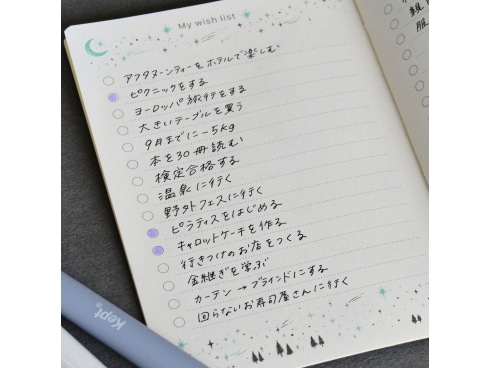 My wish list
アフタヌーンティーをホテルで楽しむ
ピクニックをする
ヨーロッパ旅行をする
大きいテーブルを買う
9月までに-5kg
本を30冊読む
検定合格する
温泉に行く
野外フェスに行く
ピラティスをはじめる
キャロットケーキを作る
行きつけのお店をつくる
金継ぎを学ぶ
カーテン→ブラインドにする
回らないお寿司屋さんに行く
服
Kept®